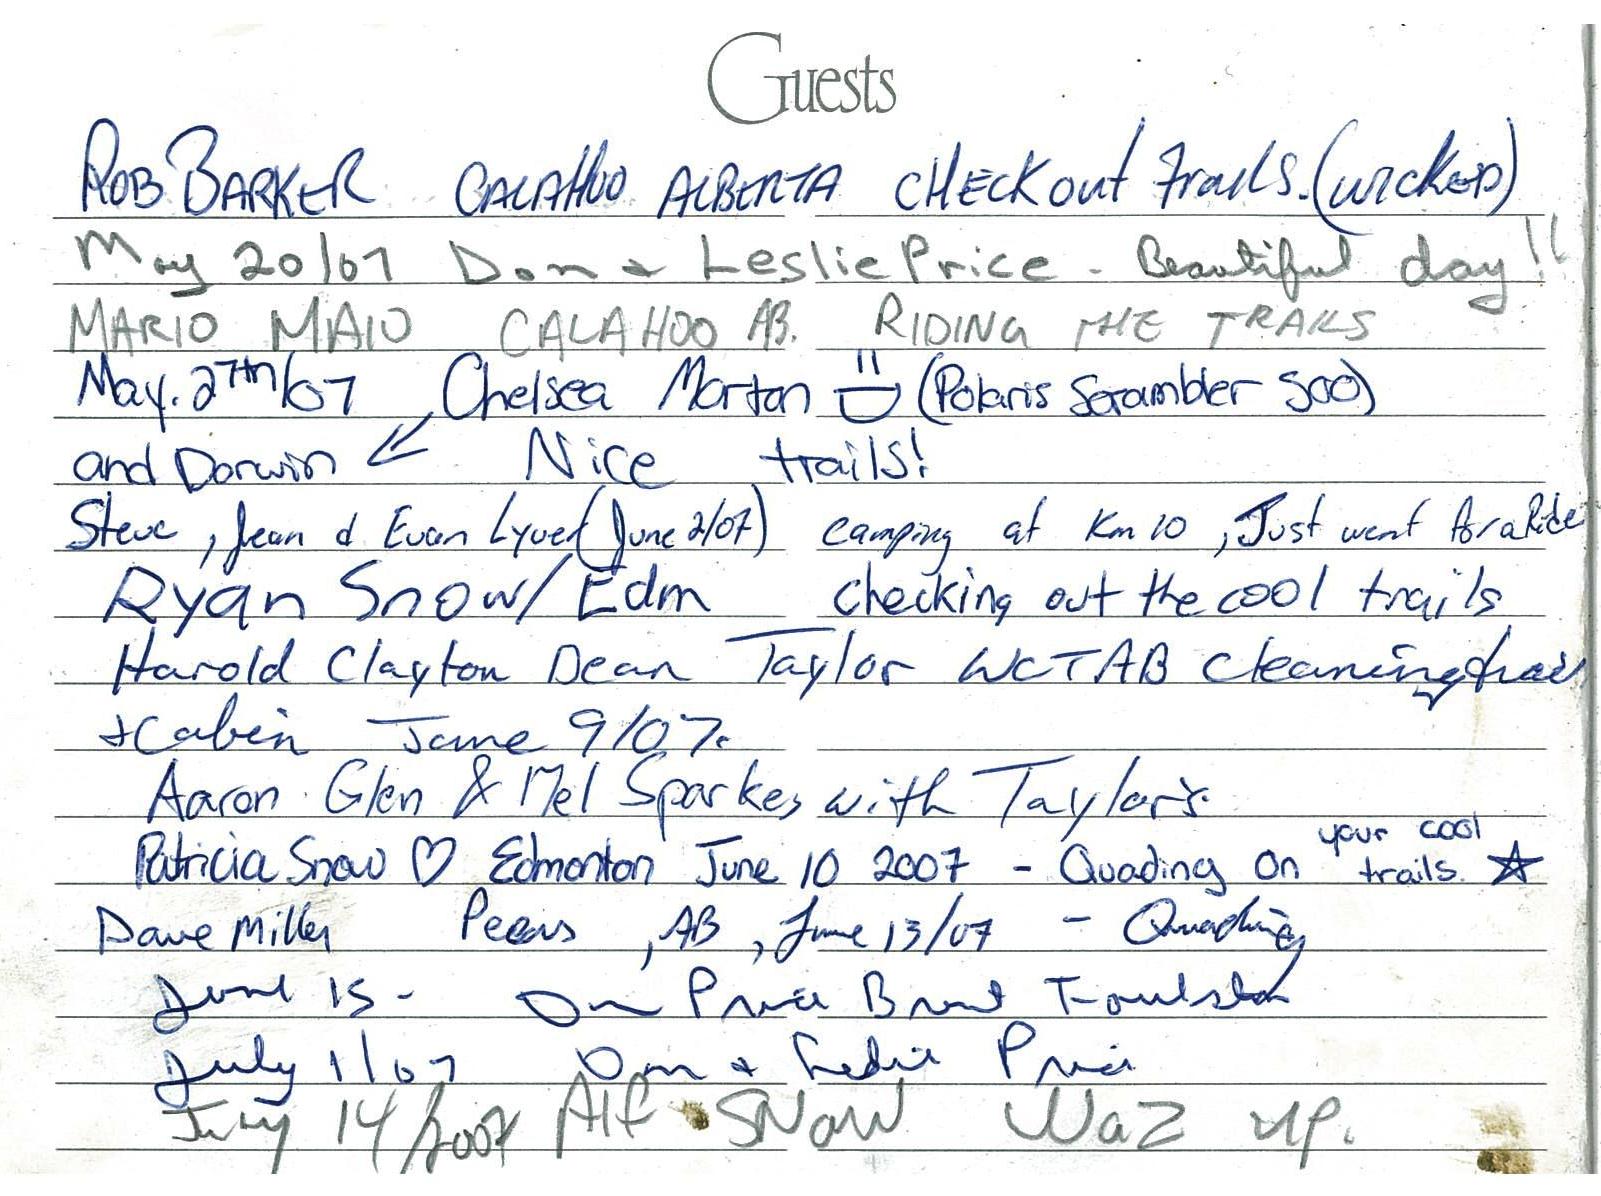 Guests
ROB BARKER CALAHOO ALBERTA CHECK out trails. (WICKED)
May 20/07 Don & Leslie Price - Beautiful day!!
MARIO MAIO CALAHOO AB. RIDING THE TRAILS
May. 27th/07 Chelsea Morton (Polaris Scrambler 500)
and Darwin Nice trails!
Steve, Jean & Evan Lyver (June 2/07) camping at Km 10, Just went for a Ride
Ryan Snow/Edm checking out the cool trails
Harold Clayton Dean Taylor WCTAB cleaning trail
+ Cabin June 9/07.
Aaron Glen & Mel Sparkes with Taylor's
Patricia Snow ♡ Edmonton June 10 2007 - Quading On your cool trails. ☆
Dave Miller Peers, AB, June 13/07 - Quading
June 15 - Don Price Brent
July 1/07 Don & Leslie Price
July 14/2007 Alf SNOW Waz up.